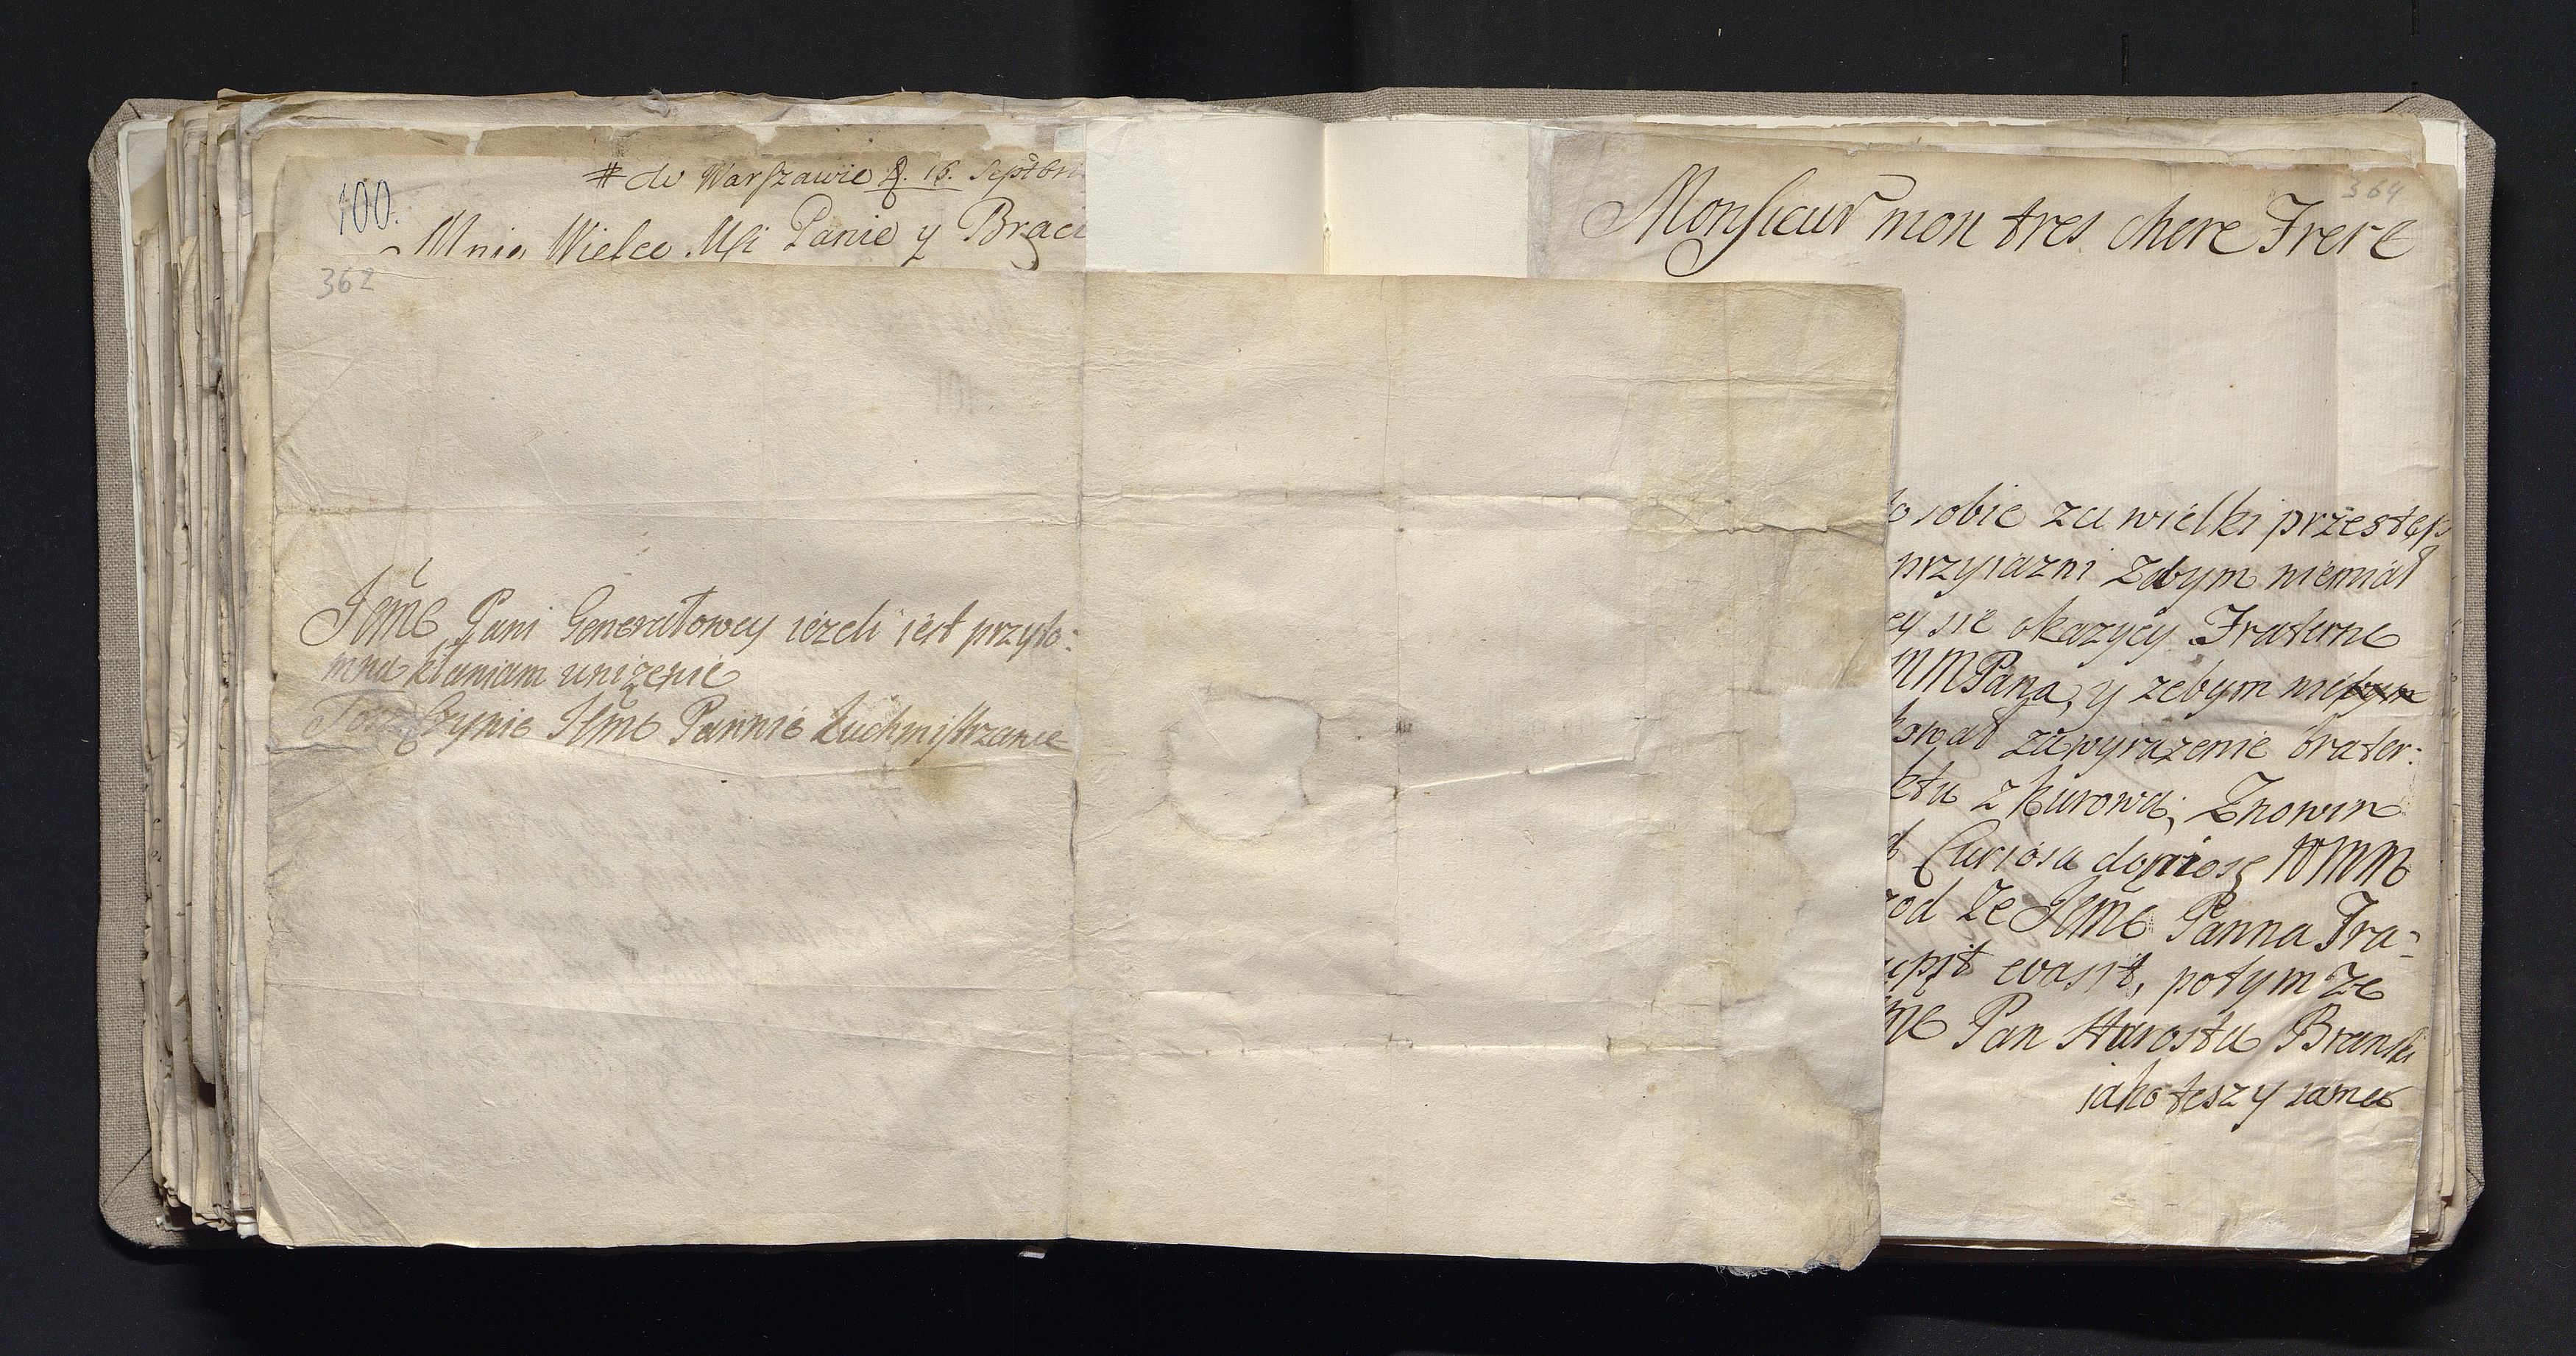 100.
# de Warszawie d. 16. Septbri
Mnie Wielce Mści Panie y Braci
362
Jeme Pani Generałowey ieżeli iest przyto:
mna kłaniam uniżenie
Tosz Czynie Jeme Pannie Łuchmistrzance
364
Monsieur mon tres chere Frere
sobie za wielki przestęp
przyiazni żebym niemiał
ey sie okazyey Fraterne
MMPana, y żebym nie
kował zawyrażenie brater:
ktu z Kurowa; Znowin
Curiosa doniosę WMM
że Jeme Panna Fra-
evasit, potym że
Pan Starosta Branski
iako teszy sama